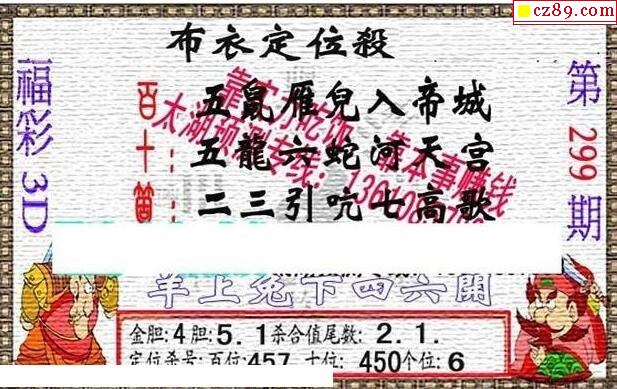 cz89.com
布衣定位殺
福彩3D
第299期
百：五鼠雁兒入帝城
十：五龍六蛇河天宫
二三引吭七高歌
靠实力吃饭 靠本事赚钱
太湖预测专线：
羊上兔下四六開
金胆:4胆:5.1杀合值尾数:2.1.
定位杀号:百位:457 十位:450个位:6